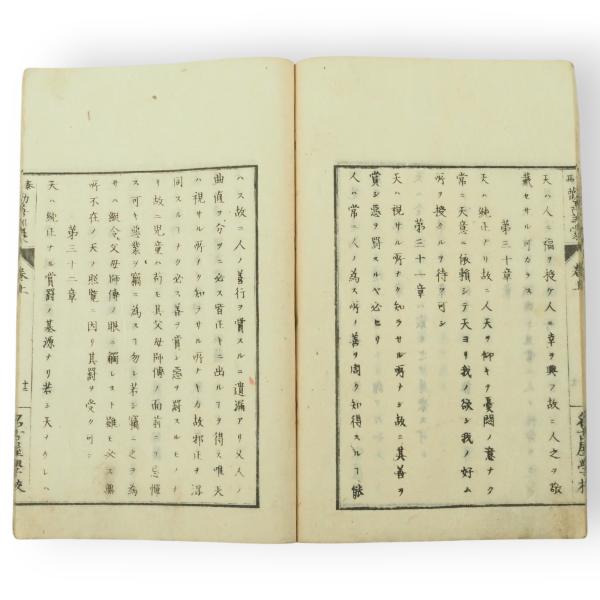 天ハ人ニ福ヲ授ケ人ニ幸ヲ與フ故ニ人之ヲ敬
戴セサル可カラス
第三十章
天ハ純正ナリ故ニ人天ヲ仰キテ憂悶ノ意ナク
常ニ天意ニ依頼シテ天ヨリ我ノ欲シ我ノ好ム
所ヲ授クルヲ待ツ可シ
第三十一章
天ハ視サル所ナク知ラサル所ナシ故ニ其善ヲ
賞シ悪ヲ罰スルヤ必セリ
人ハ常ニ人ノ為ス所ノ善ヲ周ク知得スル丁能
ハス故ニ人ノ善行ヲ賞スルニ遺漏アリ又人ノ
曲直ヲ分ツニ必ス皆正キニ出ル丁ヲ得ス唯天
ハ視サル所ナク知ラサル所ナキカ故邪正ヲ混
同スル丁ナク必ス善ヲ賞シ悪ヲ罰スルモノナ
リ故ニ児童ハ苟モ其父母師傅ノ面前ニテ忌憚
ス可キ悪業ヲ竊ニ為ス丁勿レ若シ竊ニ之ヲ為
サハ縦令父母師傅ノ眼ニ觸レスト雖モ必ス
所不在ノ天ノ照覧ニ因リ其罰ヲ受ク可シ
第三十二章
天ハ純正ナル賞罰ノ基源ナリ若シ天ナクレハ
巻上
十三
名古屋學校